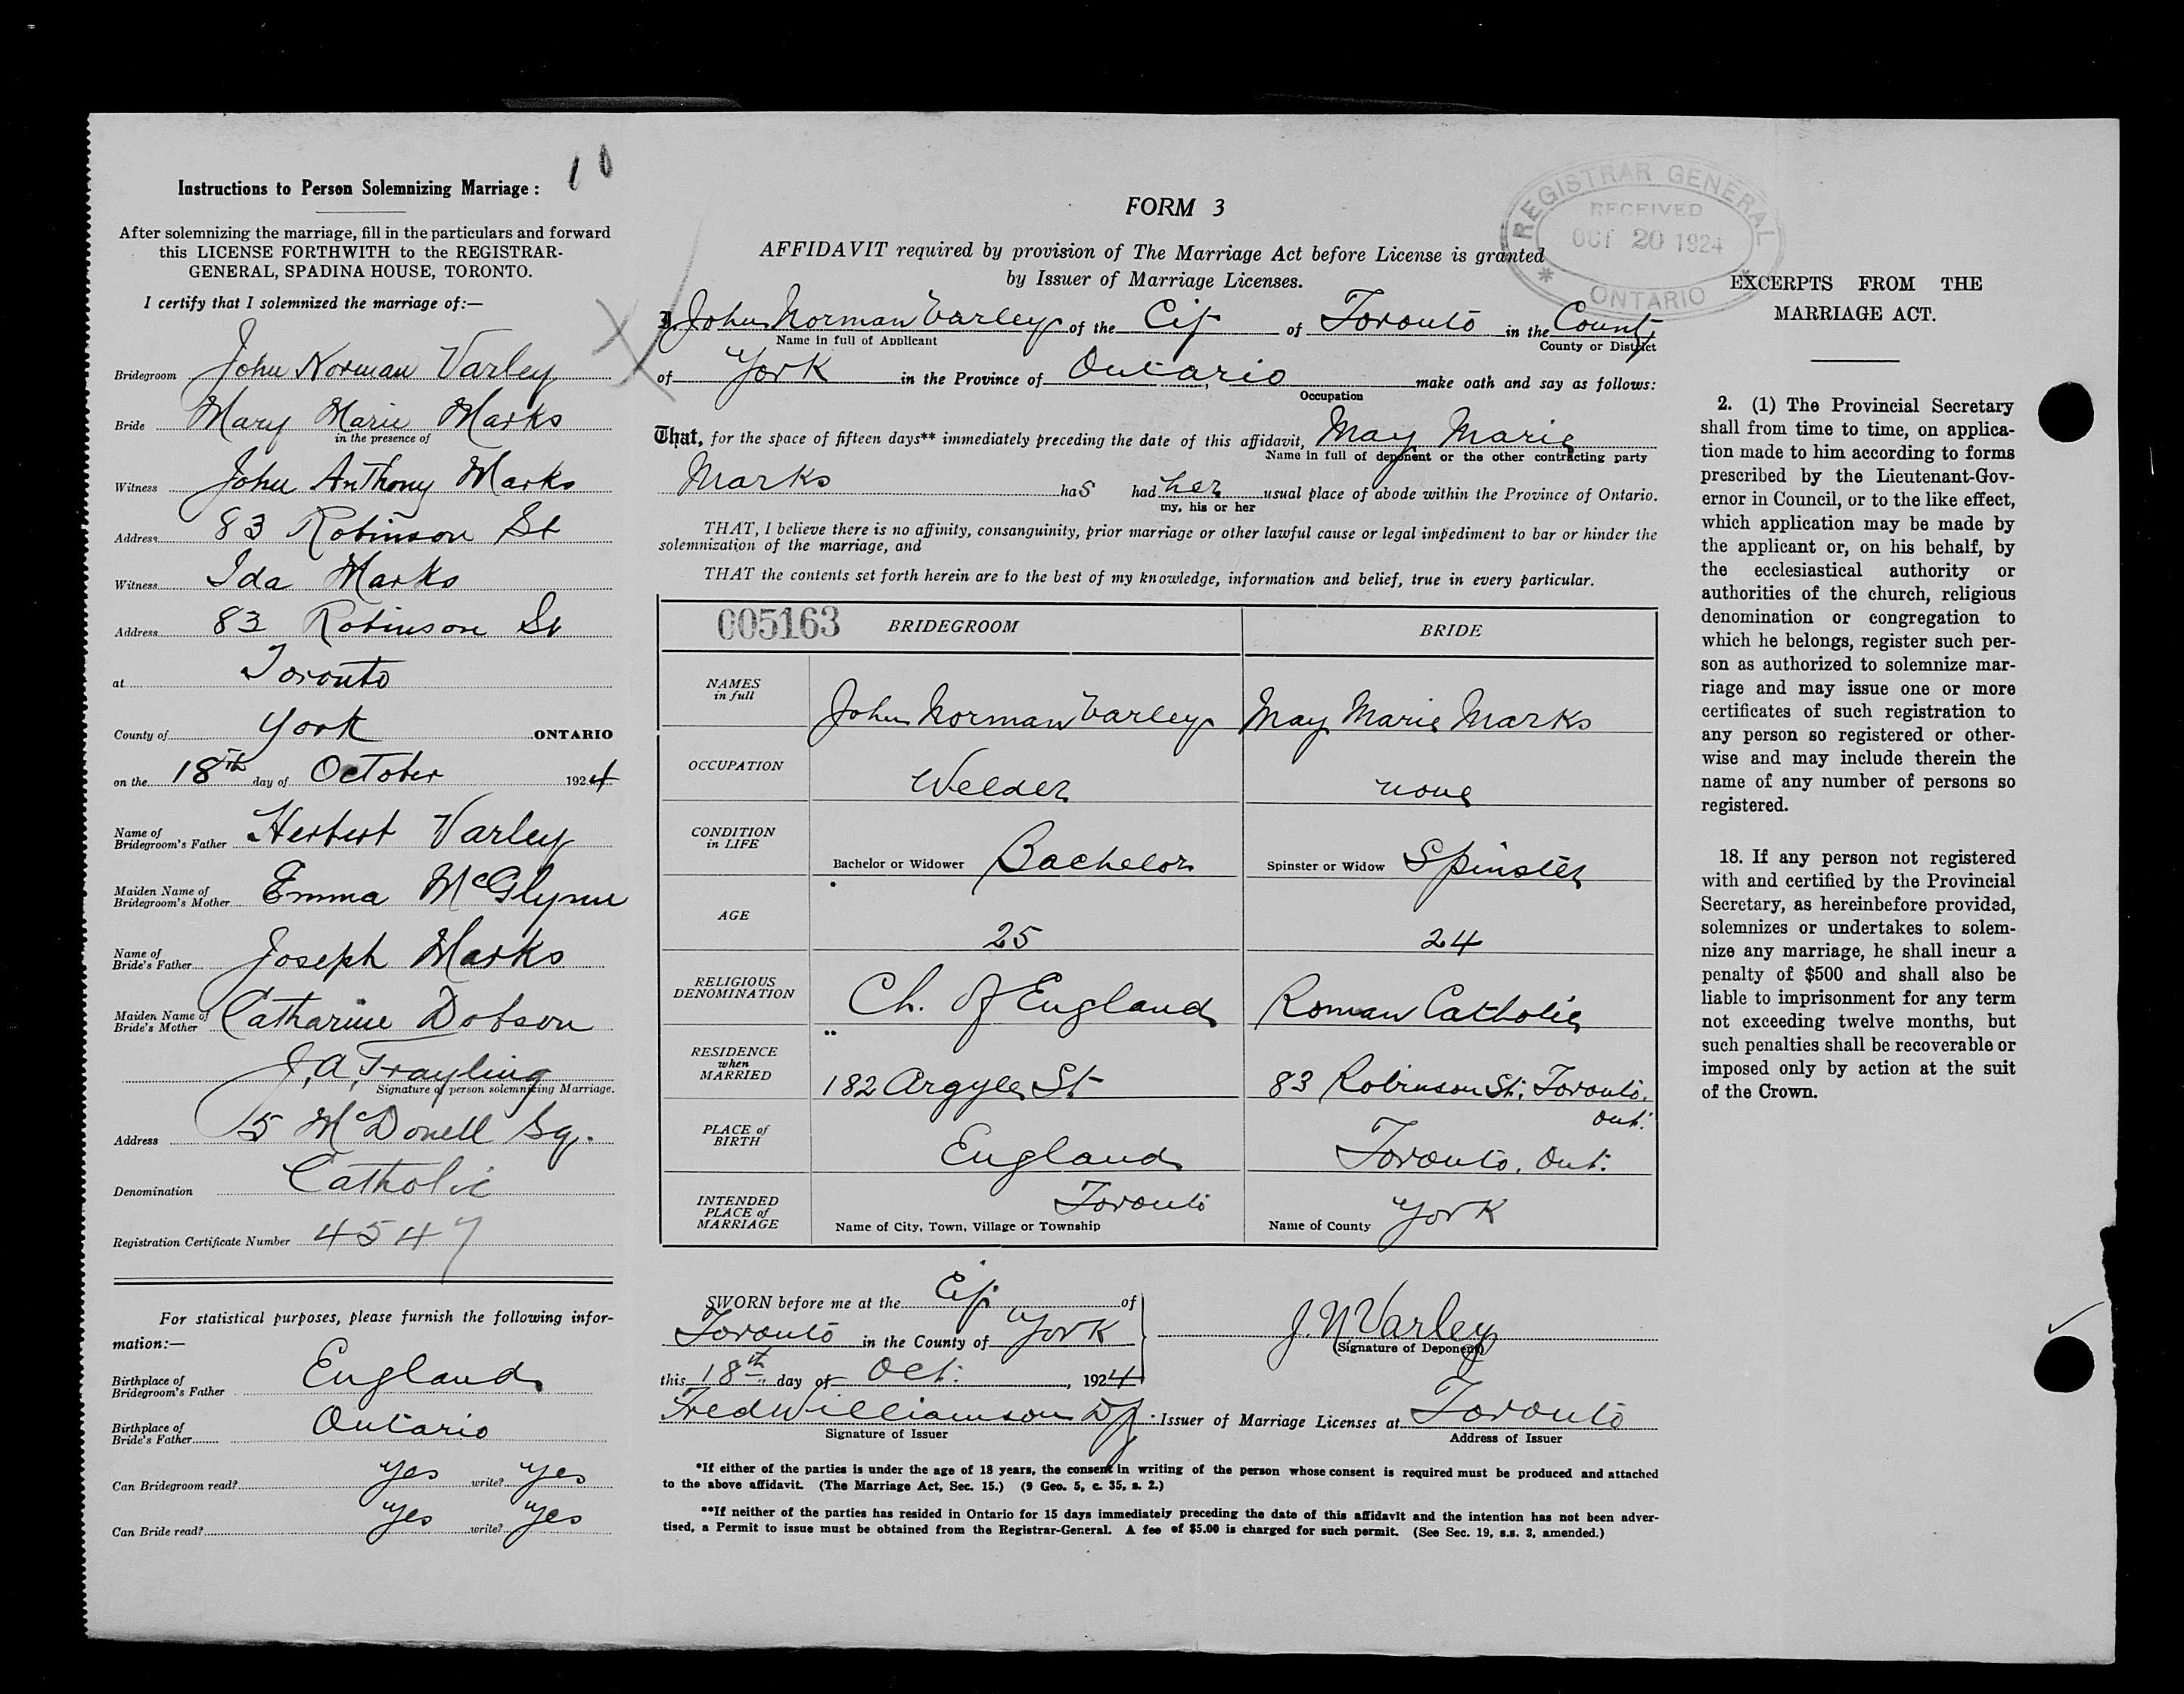 1 0
Instructions to Person Solemnizing Marriage :
After solemnizing the marriage, fill in the particulars and forward
this LICENSE FORTHWITH to the REGISTRAR-
GENERAL, SPADINA HOUSE, TORONTO.
I certify that I solemnized the marriage of:—
Bridegroom John Norman Varley
Bride Mary Marie Marks
in the presence of
Witness John Anthony Marks
Address 83 Robinson St
Witness Ida Marks
Address 83 Robinson St
at Toronto
County of York ONTARIO
on the 18th day of October 1924
Name of
Bridegroom's Father Herbert Varley
Maiden Name of
Bridegroom's Mother Emma McGlynn
Name of
Bride's Father Joseph Marks
Maiden Name of
Bride's Mother Catharine Dobson
J. A. Trayling
Signature of person solemnizing Marriage.
Address 15 McDonell Sq.
Denomination Catholic
Registration Certificate Number 4547
For statistical purposes, please furnish the following infor-
mation:—
Birthplace of
Bridegroom's Father England
Birthplace of
Bride's Father Ontario
Can Bridegroom read? yes write? yes
Can Bride read? yes write? yes
FORM 3
REGISTRAR GENERAL
RECEIVED
OCT 20 1924
ONTARIO
AFFIDAVIT required by provision of The Marriage Act before License is granted
by Issuer of Marriage Licenses.
I, John Norman Varley of the City of Toronto in the County
Name in full of Applicant County or District
of York in the Province of Ontario make oath and say as follows:
Occupation
That, for the space of fifteen days** immediately preceding the date of this affidavit, May Marie
Name in full of deponent or the other contracting party
Marks has had her usual place of abode within the Province of Ontario.
my, his or her
THAT, I believe there is no affinity, consanguinity, prior marriage or other lawful cause or legal impediment to bar or hinder the
solemnization of the marriage, and
THAT the contents set forth herein are to the best of my knowledge, information and belief, true in every particular.
005163 BRIDEGROOM BRIDE
NAMES
in full John Norman Varley May Marie Marks
OCCUPATION Welder none
CONDITION
in LIFE Bachelor or Widower Bachelor Spinster or Widow Spinster
AGE 25 24
RELIGIOUS
DENOMINATION Ch. of England Roman Catholic
RESIDENCE
when
MARRIED 182 Argyle St 83 Robinson St. Toronto.
Ont.
PLACE of
BIRTH England Toronto, Ont.
INTENDED
PLACE of
MARRIAGE Name of City, Town, Village or Township Toronto Name of County York
SWORN before me at the City of
Toronto in the County of York
this 18th day of Oct. , 1924
J. N. Varley
(Signature of Deponent)
Fred Williamson DJ. Issuer of Marriage Licenses at Toronto
Signature of Issuer Address of Issuer
*If either of the parties is under the age of 18 years, the consent in writing of the person whose consent is required must be produced and attached
to the above affidavit. (The Marriage Act, Sec. 15.) (9 Geo. 5, c. 35, s. 2.)
**If neither of the parties has resided in Ontario for 15 days immediately preceding the date of this affidavit and the intention has not been adver-
tised, a Permit to issue must be obtained from the Registrar-General. A fee of $5.00 is charged for such permit. (See Sec. 19, s.s. 3, amended.)
EXCERPTS FROM THE
MARRIAGE ACT.
2. (1) The Provincial Secretary
shall from time to time, on applica-
tion made to him according to forms
prescribed by the Lieutenant-Gov-
ernor in Council, or to the like effect,
which application may be made by
the applicant or, on his behalf, by
the ecclesiastical authority or
authorities of the church, religious
denomination or congregation to
which he belongs, register such per-
son as authorized to solemnize mar-
riage and may issue one or more
certificates of such registration to
any person so registered or other-
wise and may include therein the
name of any number of persons so
registered.
18. If any person not registered
with and certified by the Provincial
Secretary, as hereinbefore provided,
solemnizes or undertakes to solem-
nize any marriage, he shall incur a
penalty of $500 and shall also be
liable to imprisonment for any term
not exceeding twelve months, but
such penalties shall be recoverable or
imposed only by action at the suit
of the Crown.